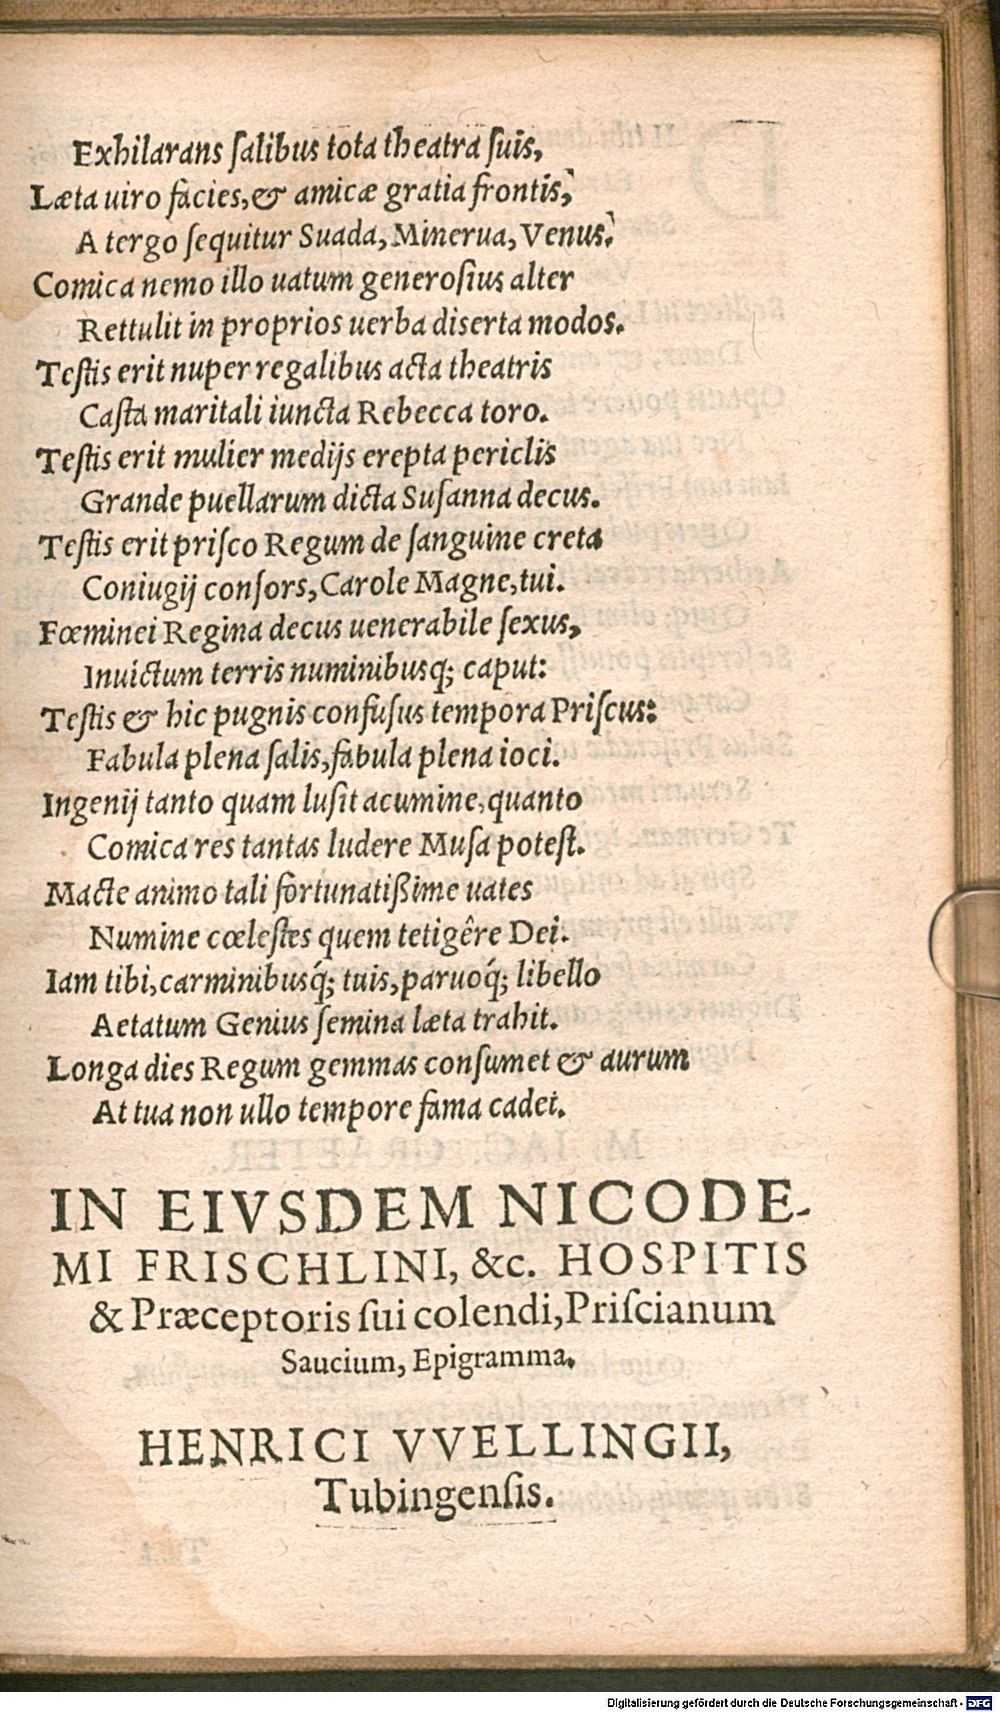 Exhilarans ſalibus tota theatra ſuis,
Læta uiro facies, & amicæ gratia frontis,
A tergo ſequitur Suada, Minerua, Venus.
Comica nemo illo uatum generoſius alter
Rettulit in proprios uerba diserta modos.
Teſtis erit nuper regalibus acta theatris
Caſta maritali iuncta Rebecca toro.
Teſtis erit mulier medijs erepta periclis
Grande puellarum dicta Suſanna decus.
Teſtis erit priſco Regum de ſanguine creta
Coniugij conſors, Carole Magne, tui.
Fœminei Regina decus uenerabile ſexus,
Inuictum terris numinibusq; caput:
Teſtis & hic pugnis confuſus tempora Priſcus:
Fabula plena ſalis, fabula plena ioci.
Ingenij tanto quam luſit acumine, quanto
Comica res tantas ludere Muſa poteſt.
Macte animo tali fortunatißime uates
Numine cœleſtes quem tetigêre Dei.
Iam tibi, carminibusq́; tuis, paruoq́; libello
Aetatum Genius ſemina læta trahit.
Longa dies Regum gemmas conſumet & aurum
At tua non ullo tempore fama cadet.
IN EIVSDEM NICODE-
MI FRISCHLINI, &c. HOSPITIS
& Præceptoris ſui colendi, Priſcianum
Saucium, Epigramma.
HENRICI VVELLINGII,
Tubingenſis.
Digitalisierung gefördert durch die Deutsche Forschungsgemeinschaft - DFG